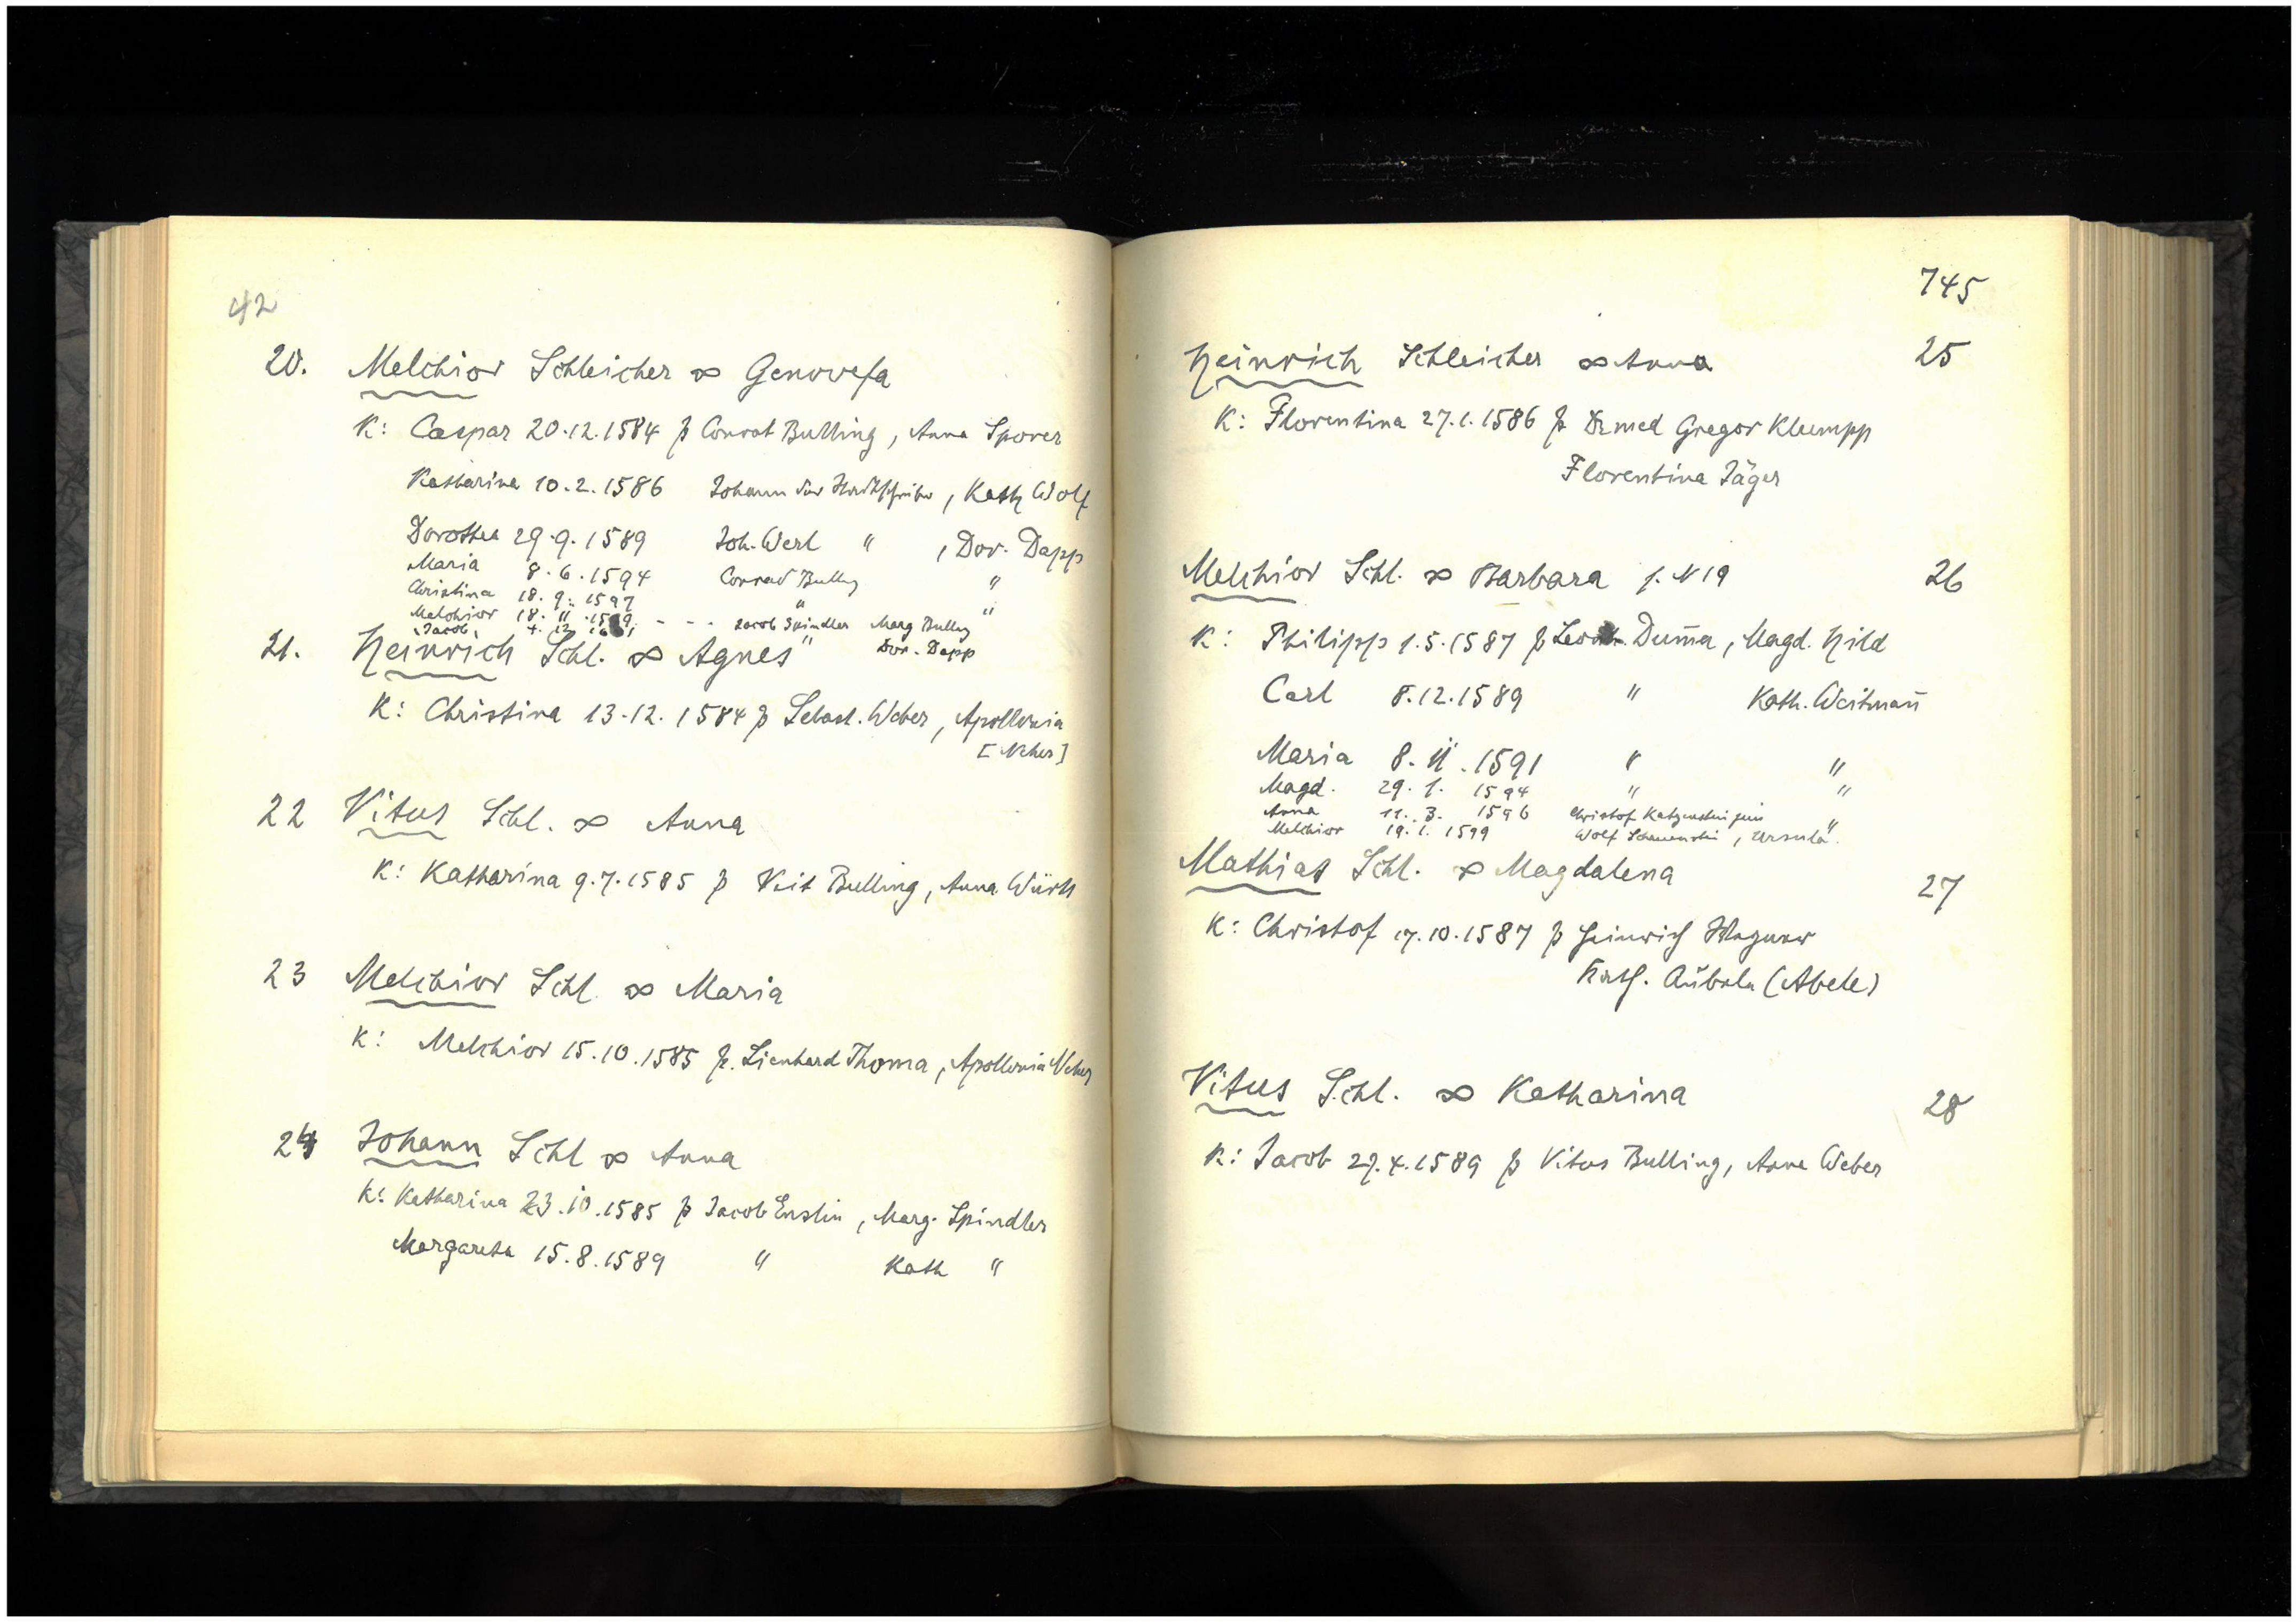 42
20. Melchior Schleicher ∞ Genovefa
K: Caspar 20.12.1584 p Conrat Bulling, Anna Sporer
Katharina 10.2.1586 Johann der, Kath Wolf
Dorothea 29.9.1589 Joh. Werl ", Dor. Dapp
Maria 8.6.1594 Conrad Bulling "
Christina 18.9.1597 " "
Melchior 18.11. - - - Jacob Spindler Marg Bulling
Jacob 4.12. " Dor. Dapp
21. Heinrich Schl. ∞ Agnes
K: Christina 13.12.1584 p Sebast. Weber, Apollonia
[Neher]
22 Vitus Schl. ∞ Anna
K: Katharina 9.7.1585 p Veit Bulling, Anna Würth
23 Melchior Schl. ∞ Maria
K: Melchior 15.10.1585 p. Lienhard Thoma, Apollonia Neher
24 Johann Schl ∞ Anna
K: Katharina 23.10.1585 p Jacob Enslin, Marg. Spindler
Margareta 15.8.1589 " Kath "
745
Heinrich Schleicher ∞ Anna 25
K: Florentina 27.1.1586 p Dr med Gregor Klumpp
Florentina Jäger
Melchior Schl. ∞ Barbara s. N 19 26
K: Philipp 1.5.1587 p Dum̄a, Magd. Hild
Carl 8.12.1589 " Kath. Weitman̄
Maria 8.11.1591 " "
Magd. 29.1.1594 " "
Anna 11.3.1596 Christof "
Melchior 19.1.1599 Wolf, Ursula ".
Mathias Schl. ∞ Magdalena 27
K: Christof 17.10.1587 p Heinrich Wagner
Kath. Aübele (Abele)
Vitus Schl. ∞ Katharina 28
K: Jacob 27.4.1589 p Vitus Bulling, Anna Weber